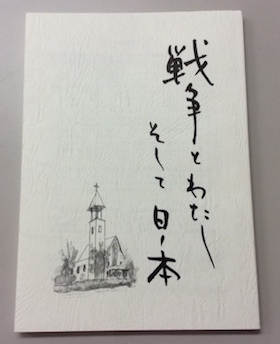 戦争とわたし
そして日本